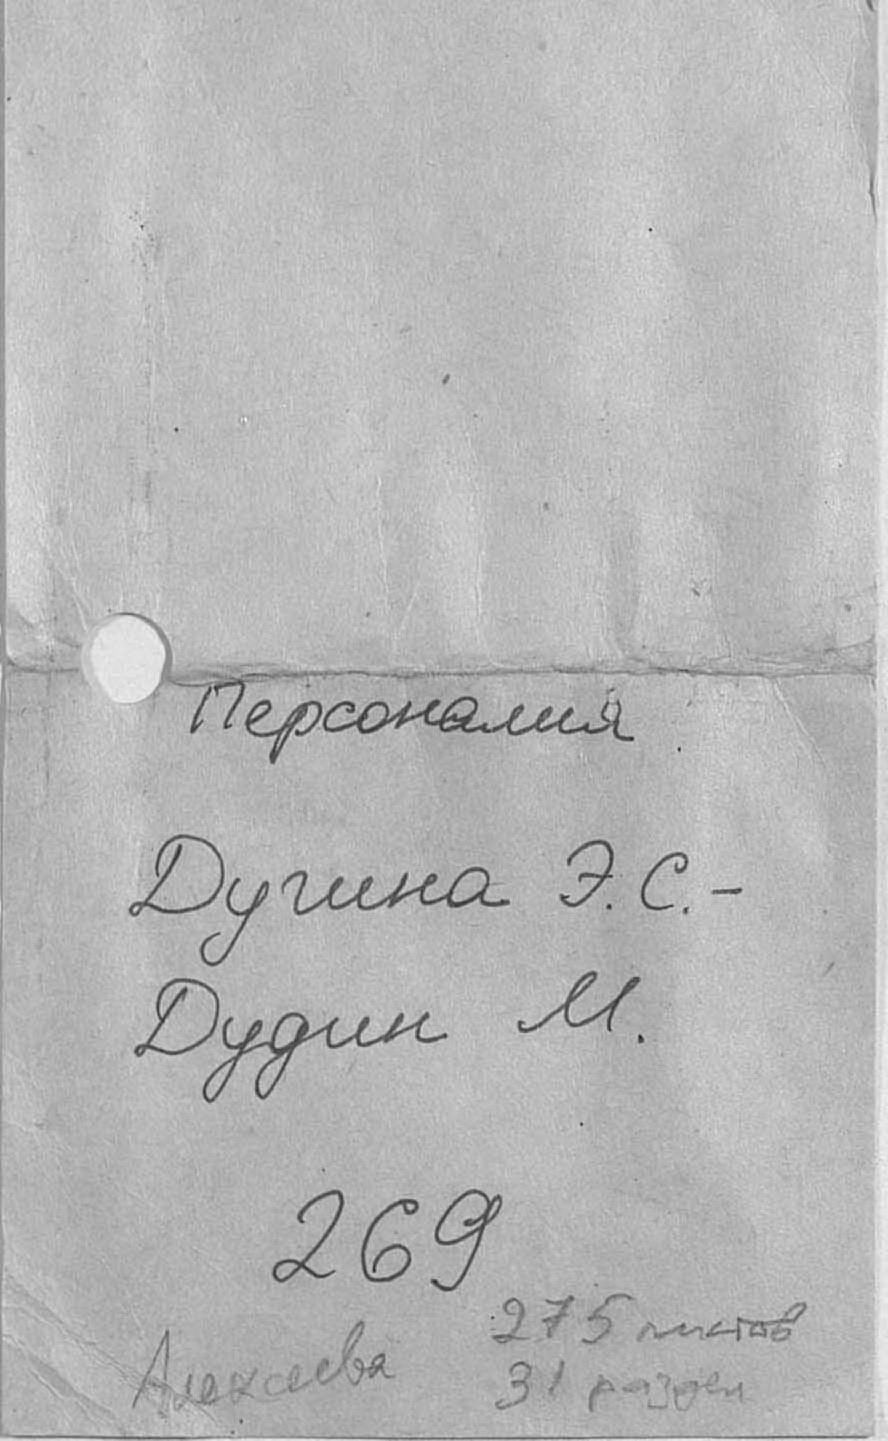 Персоналия
Дугина Э.С.-
Дудин М.
269
275 листов
Алексеева
31 раздел